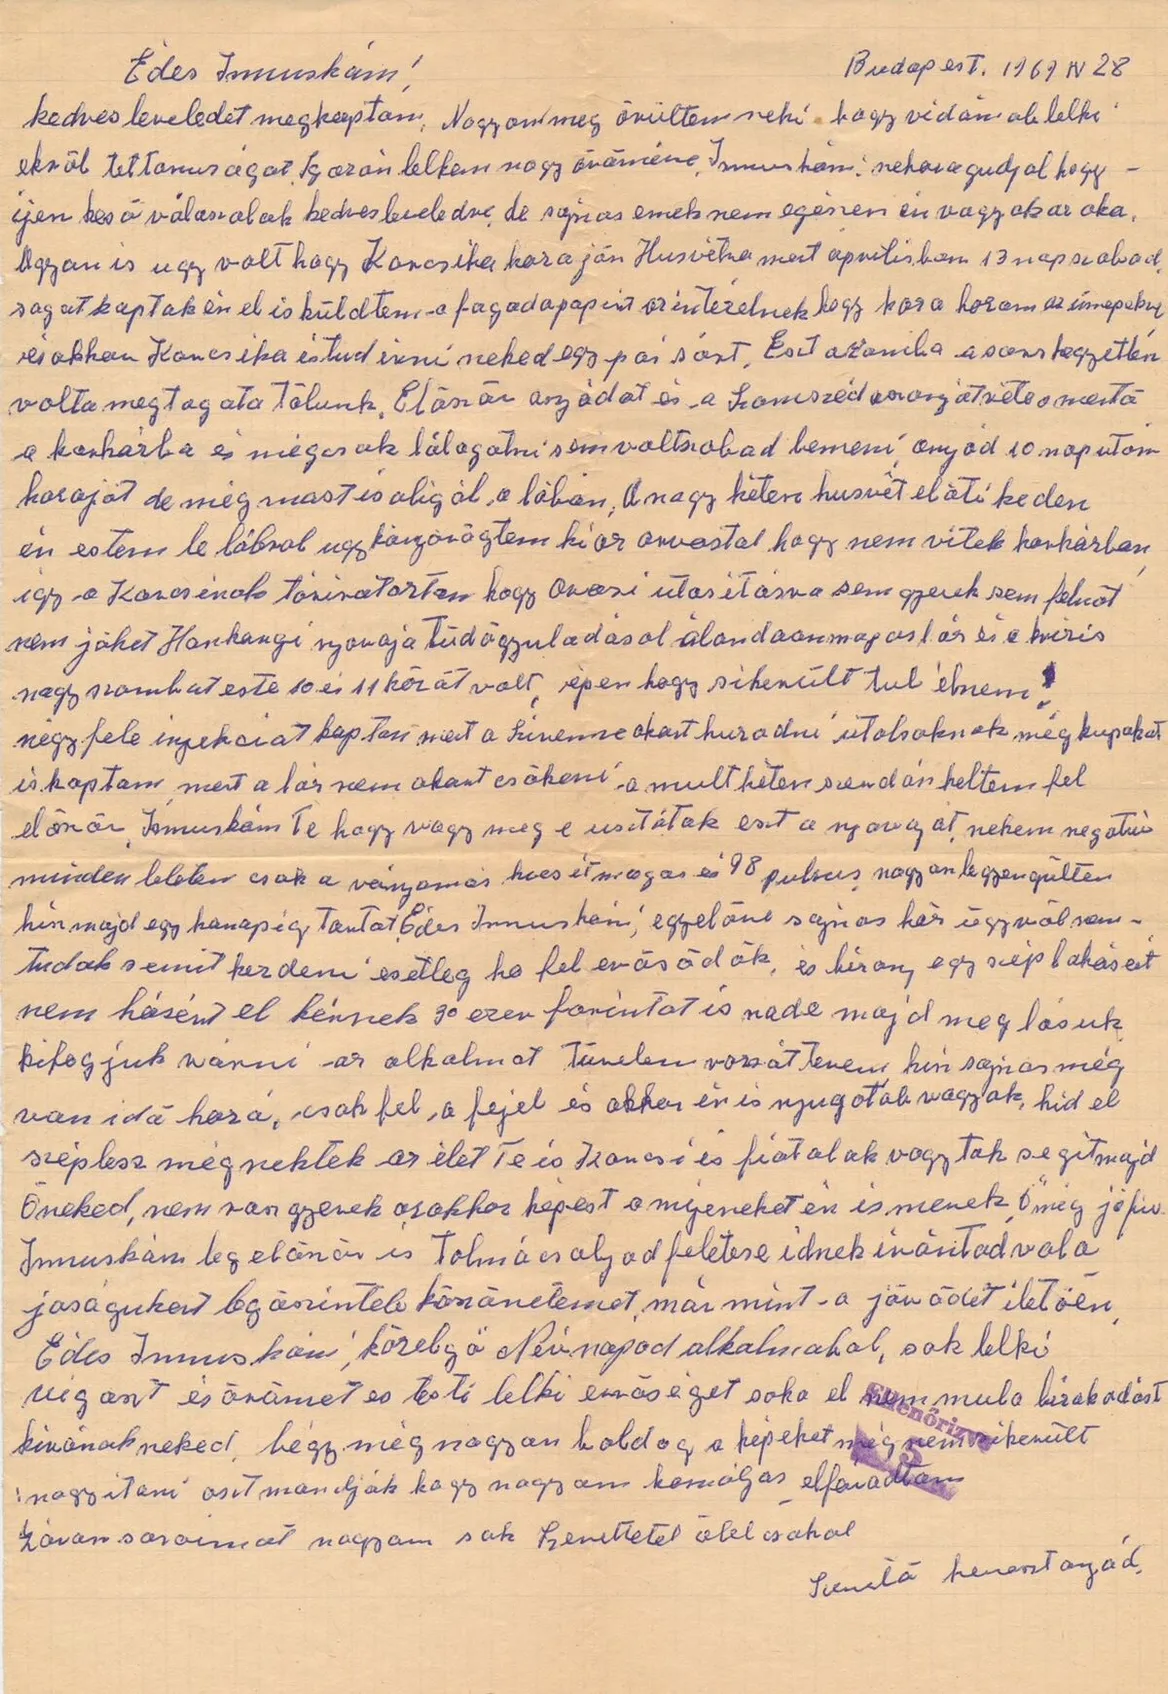 Édes Immuskám! Budapest. 1969 IV 28
kedves leveledet megkaptam, Nagyon meg örültem neki hogy vidámab lelki
erőröl tettanuságat, Igazán lelkem nagy öröméne, Immuskám! neharagudjal hogy -
ijen késő válaszolok kedves leveledre, de sajnos enek nem egészen én vagyok az oka,
Ugyan is ugy volt hogy Karcsika haza jön Husvétra mert áprilisban 13 nap szabad,
ságat kaptak én el is küldtem a fagadapapirt az intézetnek hogy haza hozom az ünepekre
és akkor Karcsika is tud irni neked egy pár sort, Ezt azomba a sors kegyetlen
volt a megtagata tőlunk, Elöször anyádat és a Szomszéd asszonyt vite a mentő
a korházba és mégcsak látogatni sem volt szabad bemeni, anyád 10 nap utám
hazajöt de még mast is alig ál a lábán, A nagy héten husvét eläti keden
én estem le lábrol ugy könyörögtem ki az orvostol hogy nem vitek korházban,
igy a Karcsinak táviratoztam hogy orvosi utasitásra sem gyerek sem felnőt
nem jöhet Honkongi nyavaja tüdőgyuladásal álandoan magas láz és a krizis
nagy szombat este 10 és 11 közöt volt, épen hogy sikerült tul élnem!
négy fele injekciát kaptam mert a Szivem ki akart hunadni utolsoknak még kupakat
is kaptam, mert a láz nem akart csökeni a mult héten szerdán keltem fel
elöször, Immuskám Te hogy vagy meg e usztátak ezt a nyavaját, nekem negativ
minden leletem csak a vérnyomás kicsit magas és 98 pulzus, nagyon legyengültem
hisz majd egy honapig tartot, Édes Immuskám, egyelöre sajnos ház ügyröl sem-
tudok semit kezdeni esetleg ha fel erősödök, és bizony egy szép lakásért
nem kész el kérnek 90 ezer forintot is nade majd meg lásuk
kifogjuk várni az alkalmat türelem rozsát terem, hisz sajnos még
van idő hozá, csak fel a fejel és akkor én is nyugotab vagyok, hid el
szép lesz még nektek az élet Te is Karcsi is fiatalak vagytok segit majd
Öneked, nem rosz gyerek azokhoz képest amijeneket én is merek, ő még jó fiu.
Immuskám legelöször is Tolmácsoljad feletese idnek irántad valo
joságukert legöszintéb köszönetemet, már mint a jövődet iletöen,
Édes Immuskám, közelgő Névnapod alkalmábol, sok lelki
vigaszt és örömet es testi lelki erősséget soha el nem mulo bizakodást
kivánok neked, légy még nagyon boldog a képeket még nem sikerült
nagyitani aszt mondják hogy nagyon homályos, elfáradtam
Zárom soraimat nagyon sok Szeretettel ölel csokol
Szerető kereszt anyád,
Ellenőrizve
5